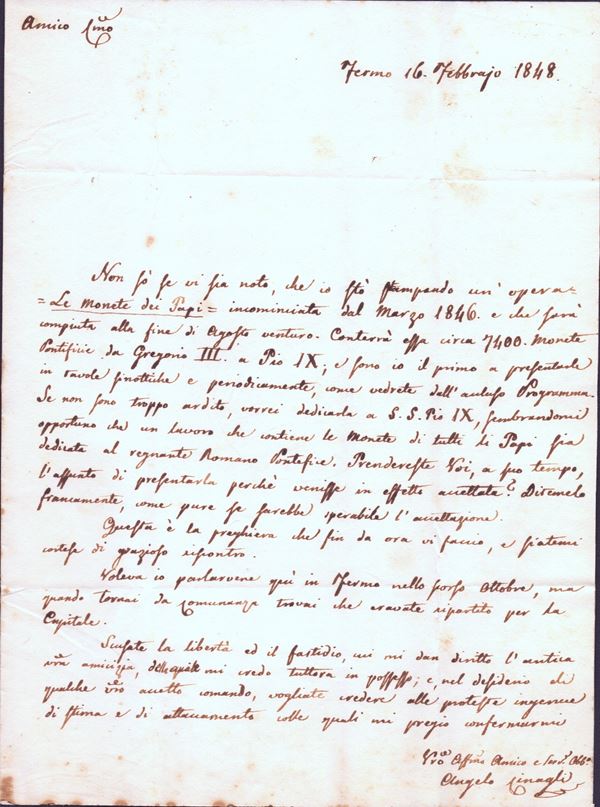 Amico Cmo
Fermo 16. Febbrajo 1848.
Non sò se vi sia noto, che io stò stampando un' opera =
= Le Monete dei Papi = incominciata dal Marzo 1846. e che sarà
compiuta alla fine di Agosto venturo. Conterrà essa circa 7400. Monete
Pontificie da Gregorio III. a Pio IX, e sono io il primo a presentarle
in tavole sinottiche e periodicamente, come vedrete dall' accluso Programma.
Se non sono troppo ardito, vorrei dedicarla a S. S. Pio IX, sembrandomi
opportuno che un lavoro che contiene le Monete di tutti li Papi sia
dedicata al regnante Romano Pontefice. Prendereste Voi, a suo tempo,
l' assunto di presentarla perchè venisse in effetto accettata? Ditemelo
francamente, come pure se sarebbe sperabile l' accettazione.
Questa è la preghiera che fin da ora vi faccio, e siatemi
cortese di grazioso riscontro.
Voleva io parlarvene quì in Fermo nello scorso Ottobre, ma
quando tornai da Comunanza trovai che eravate ripartito per la
Capitale.
Scusate la libertà ed il fastidio, cui mi dan diritto l' antica
vra amicizia, della quale mi credo tuttora in possesso; e, nel desiderio di
qualche vro accetto comando, vogliate credere alle proteste ingenue
di stima e di attaccamento colle quali mi pregio confermarmi
Vro Affmo Amico e Serv. Obbo
Angelo Cinagli